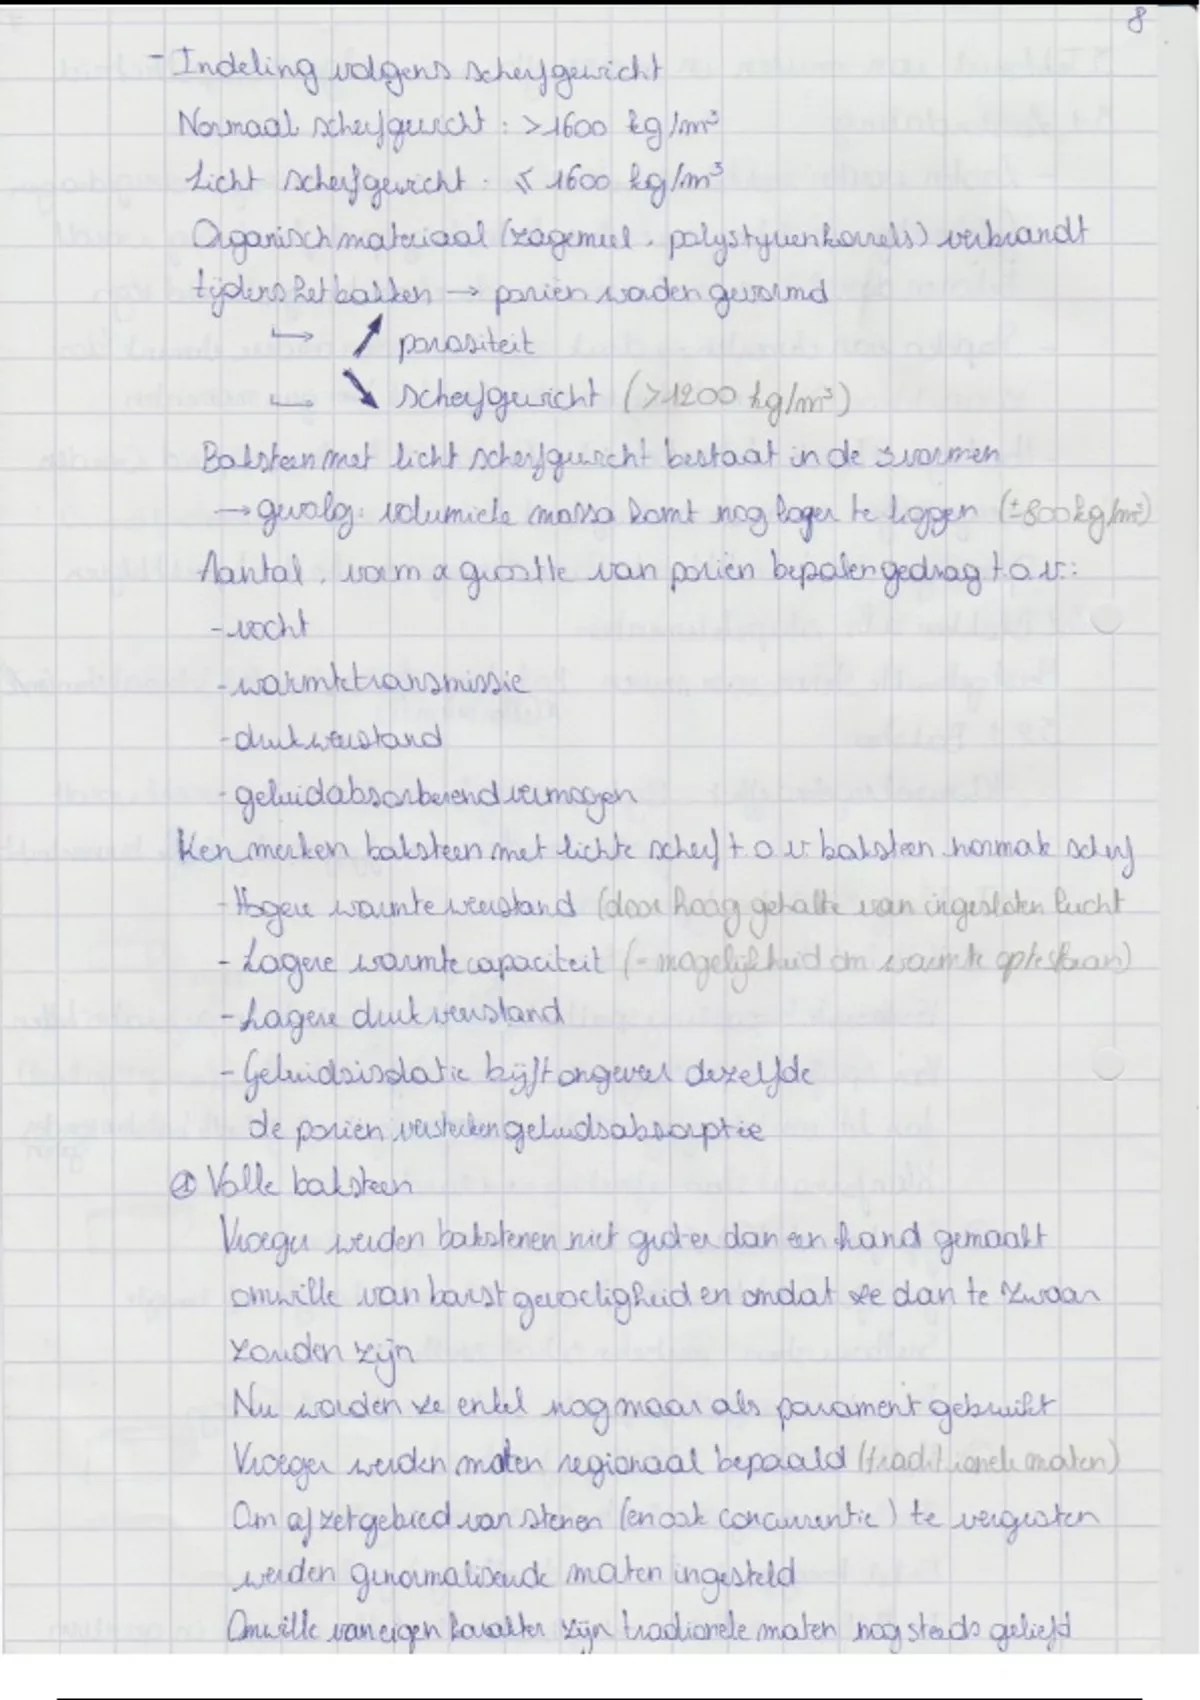 8
- Indeling volgens scherfgewicht
Normaal scherfgewicht : > 1600 kg/m³
Licht scherfgewicht : ≤ 1600 kg/m³
Organisch materiaal (zagemeel, polystyrenkorrels) verbrandt
tijdens het bakken → poriën worden gevormd
↳ ↗ porositeit
↳ ↘ scherfgewicht (>1200 kg/m³)
Baksteen met licht scherfgewicht bestaat in de 3 vormen
→ gevolg: volumieke massa komt nog lager te liggen (±800kg/m³)
Aantal, vorm & grootte van poriën bepalen gedrag t.o.v.:
- vocht
- warmtetransmissie
- drukweerstand
- geluidabsorberend vermogen
Kenmerken baksteen met lichte scherf t.o.v. baksteen normale scherf
- Hogere warmteweerstand (door hoog gehalte van ingesloten lucht
- Lagere warmtecapaciteit (= mogelijkheid om warmte op te slaan)
- Lagere drukweerstand
- Geluidsisolatie blijft ongeveer dezelfde
de poriën versterken geluidsabsorptie
① Volle baksteen
Vroeger werden bakstenen niet groter dan een hand gemaakt
omwille van barstgevoeligheid en omdat ze dan te zwaar
zouden zijn
Nu worden ze enkel nog maar als parament gebruikt
Vroeger werden maten regionaal bepaald (traditionele maten)
Om afzetgebied van stenen (en ook concurrentie) te vergroten
werden genormaliseerde maten ingesteld
Omwille van eigen karakter zijn tradionele maten nog steeds geliefd